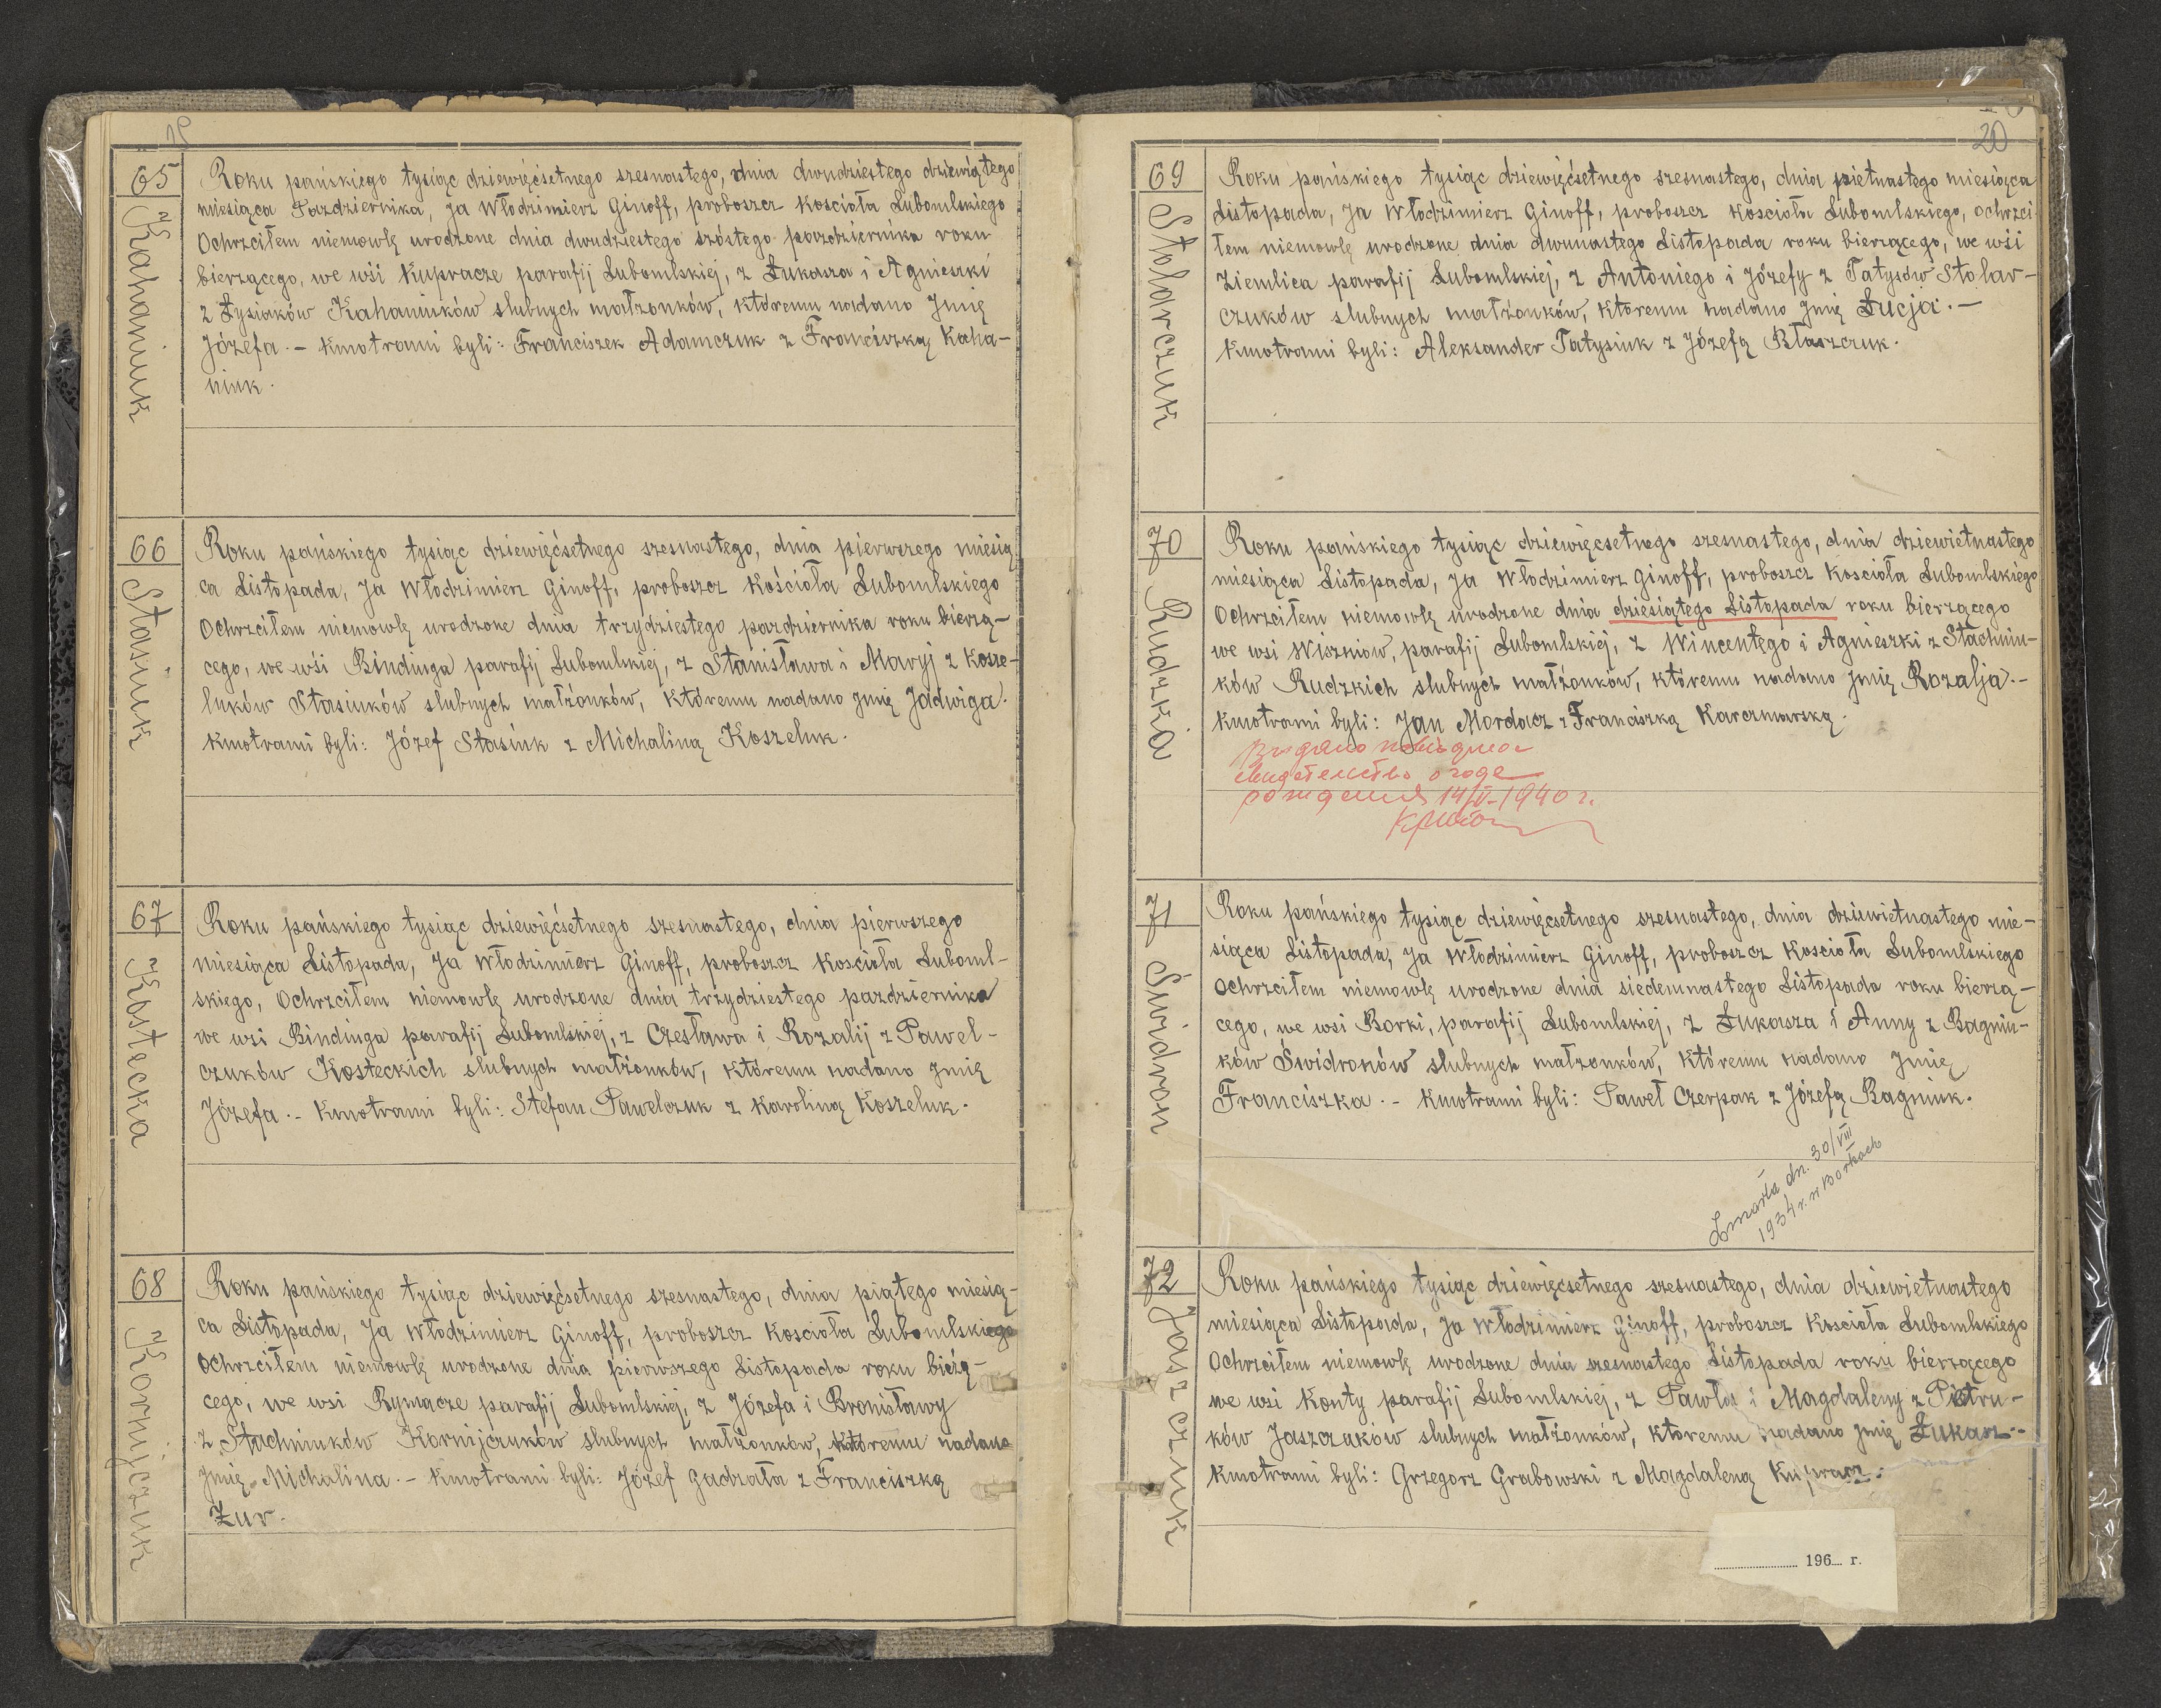 19
65
Kahaniuk
Roku pańskiego tysiąc dziewięćsetnego szesnastego, dnia dwudziestego dziewiątego
miesiąca Pazdziernika, Ja Włodzimierz Ginoff, proboszcz Kościoła Lubomlskiego
Ochrzciłem niemowlę urodzone dnia dwudziestego szóstego pazdziernika roku
bierzącego, we wśi Kupracze parafij Lubomlskiej, z Łukasza i Agnieszki
z Łysiaków Kahaniuków slubnych małżonków, któremu nadano Jmię
Józefa. – Kmotrami byli: Franciszek Adamczuk z Franciszką Kaha-
niuk.
66
Stasiuk
Roku pańskiego tysiąc dziewięćsetnego szesnastego, dnia pierwszego miesią
ca Listopada, Ja Włodzimierz Ginoff, proboszcz Kościoła Lubomlskiego
Ochrzciłem niemowlę urodzone dnia trzydziestego pazdziernika roku bierzą-
cego, we wśi Bindiuga parafij Lubomlskiej, z Stanisława i Maryj z Kosze-
luków Stasiuków slubnych małżonków, któremu nadano Jmię Jadwiga.
Kmotrami byli: Józef Stasiuk z Michaliną Koszeluk.
67
Kostecka
Roku pańskiego tysiąc dziewięćsetnego szesnastego, dnia pierwszego
miesiąca Listopada, Ja Włodzimierz Ginoff, proboszcz Koscioła Luboml-
skiego, Ochrzciłem niemowlę urodzone dnia trzydziestego pazdziernika
we wsi Bindiuga parafij Lubomlskiej, z Czesława i Rozalij z Pawel-
czuków Kosteckich slubnych małżonków, któremu nadano Jmię
Józefa. – Kmotrami byli: Stefan Pawelczuk z Karoliną Koszeluk.
68
Kornijczuk
Roku pańskiego tysiąc dziewięćsetnego szesnastego, dnia piątego miesią-
ca Listopada, Ja Włodzimierz Ginoff, proboszcz Koscioła Lubomlskiego
Ochrzciłem niemowlę urodzone dnia pierwszego Listopada roku bieżą-
cego, we wsi Rymacze parafij Lubomlskiej, z Józefa i Bronisławy
z Stachniuków Kornijczuków slubnych małżonków, któremu nadano
Jmię Michalina. – Kmotrami byli: Józef Gadzała z Franciszką
Żur.
20
69
Stolarczuk
Roku pańskiego tysiąc dziewięćsetnego szesnastego, dnia pietnastego miesiąca
Listopada, Ja Włodzimierz Ginoff, proboszcz Kosciola Lubomlskiego, ochrzci
łem niemowlę urodzone dnia dwunastego Listopada roku bierzącego, we wśi
Ziemlica parafij Lubomlskiej, z Antoniego i Józefy z Tatysów Stolar-
czuków slubnych małżonków, któremu nadano Jmię Łucja. –
Kmotrami byli: Aleksander Tatysiuk z Józefą Błaszczuk.
70
Rudzka
Roku pańskiego tysiąc dziewięcsetnego szesnastego, dnia dziewietnastego
miesiąca Listopada, Ja Włodzimierz Ginoff, proboszcz Kosciola Lubomlskiego
Ochrzciłem niemowlę urodzone dnia dziesiątego Listopada roku bierzącego
we wsi Wiszniów, parafij Lubomlskiej, z Wincentego i Agnieszki z Stachniu-
ków Rudzkich slubnych małżonków, któremu nadano Jmię Rozalja. –
Kmotrami byli: Jan Mordacz z Franciszką Karczmarską.
14/IV-1940 г.
71
Świdron
Roku pańskiego tysiąc dziewięcsetnego szesnastego, dnia dziewietnastego mie-
siąca Listopada, Ja Włodzimierz Ginoff, proboszcz Kościoła Lubomlskiego
Ochrzciłem niemowlę urodzone dnia siedemnastego Listopada roku bierzą-
cego, we wsi Borki, parafij Lubomlskiej, z Łukasza i Anny z Bagniu-
ków Świdronów slubnych małżonków, któremu nadano Jmię
Franciszka. – Kmotrami byli: Paweł Czerpak z Józefą Bagniuk.
Zmarła dn. 30/VIII
1934 r. w Borkach
72
Jaszczuk
Roku pańskiego tysiąc dziewięćsetnego szesnastego, dnia dziewietnastego
miesiąca Listopada, Ja Włodzimierz Ginoff, proboszcz Kosciola Lubomlskiego
Ochrzciłem niemowlę urodzone dnia szesnastego Listopada roku bierzącego
we wsi Konty parafij Lubomlskiej, z Pawła i Magdaleny z Pietru-
ków Jaszczuków slubnych małżonków, któremu nadano Jmię Łukasz. –
Kmotrami byli: Grzegorz Grabowski z Magdaleną Kupracz.
196.... r.